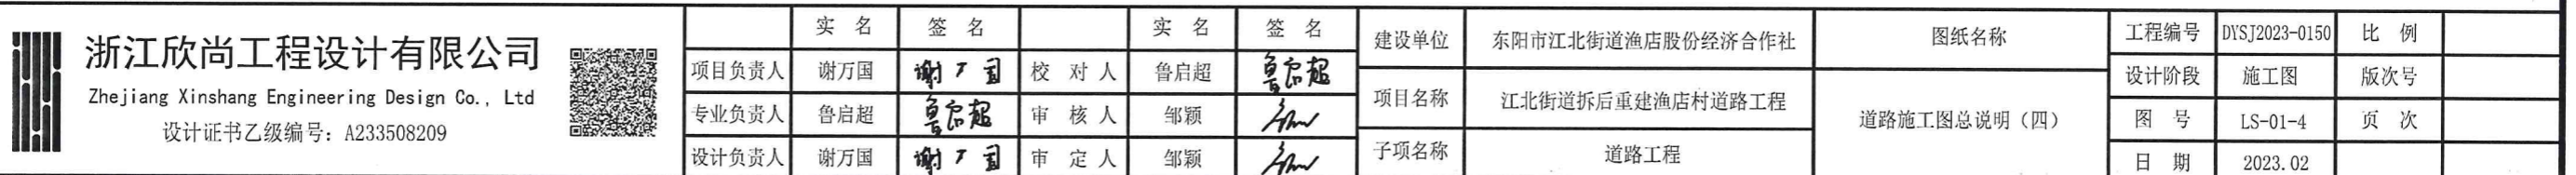 浙江欣尚工程设计有限公司
Zhejiang Xinshang Engineering Design Co., Ltd
设计证书乙级编号: A233508209
实 名 签 名 实 名 签 名
项目负责人 谢万国 谢万国 校 对 人 鲁启超 鲁启超
专业负责人 鲁启超 鲁启超 审 核 人 邹颖
设计负责人 谢万国 谢万国 审 定 人 邹颖
建设单位 东阳市江北街道渔店股份经济合作社
项目名称 江北街道拆后重建渔店村道路工程
子项名称 道路工程
图纸名称
道路施工图总说明（四）
工程编号 DYSJ2023-0150 比 例
设计阶段 施工图 版次号
图 号 LS-01-4 页 次
日 期 2023.02